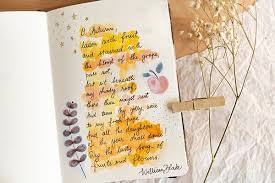 O Autumn,
laden with fruit,
and stained with
the blood of the grape,
pass not,
but sit beneath
my shady roof,
there thou mayst rest
And tune thy jolly voice
to my fresh pipe
And all the daughters
of the year shall dance
Sing the lusty song of
fruits and flowers
William Blake